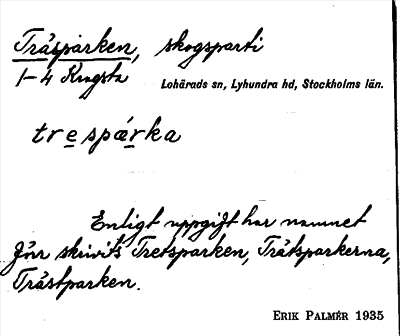 Träsparken, skogsparti
1-4 Krogsta
Lohärads sn, Lyhundra hd, Stockholms län.
trespárka
Enligt uppgift har namnet
förr skrivits Tretsparken, Trätsparkerna,
Trästparken.
ERIK PALMÉR 1935